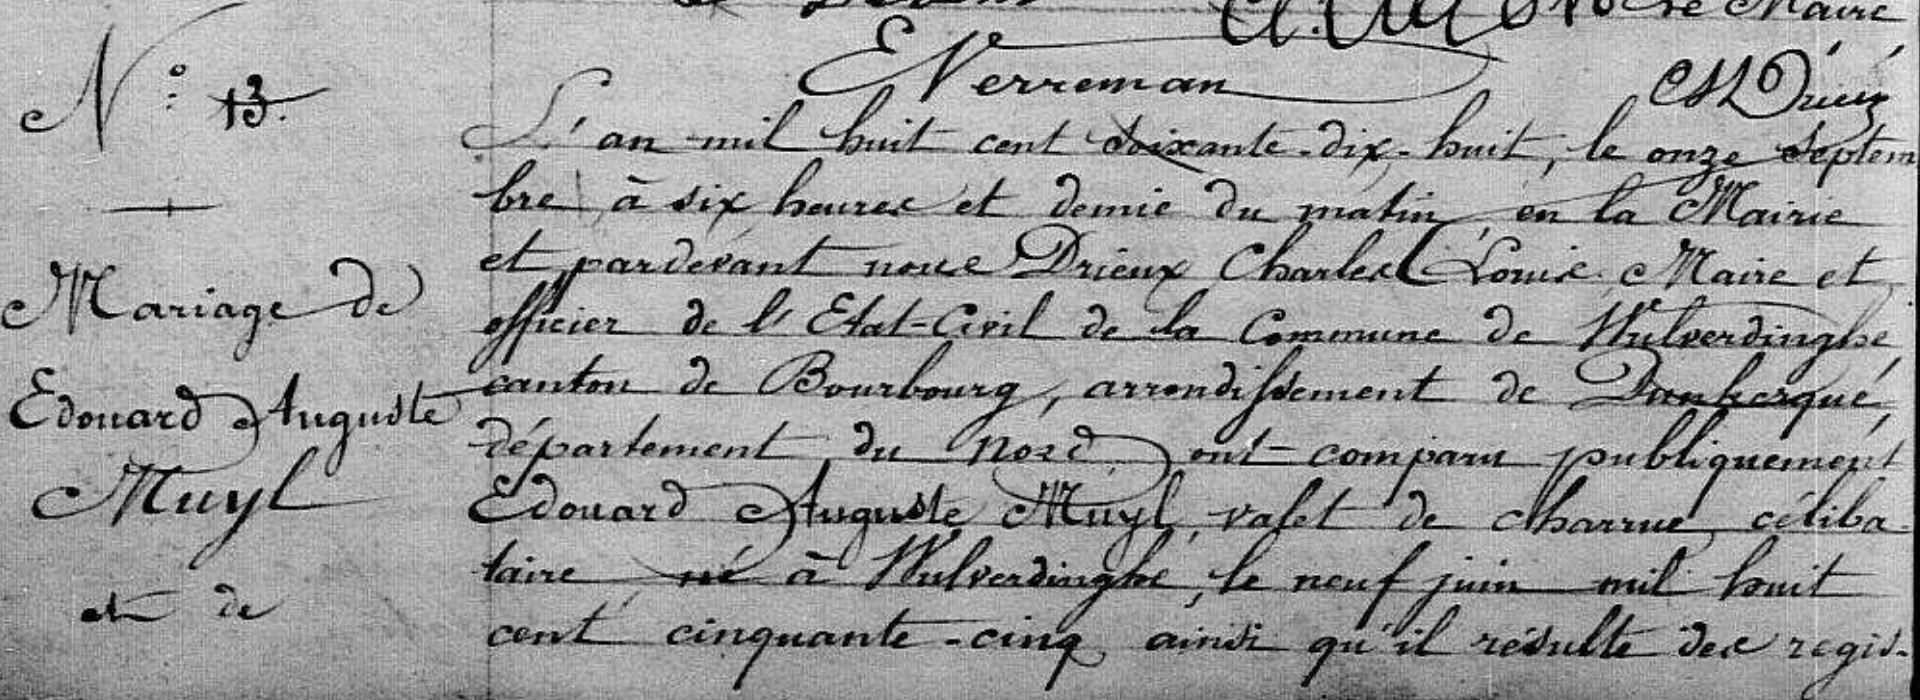 Le Maire
E Verreman
CL Drieux
N° 13.
Mariage de
Edouard Auguste
Muyl
et de
L'an mil huit cent soixante-dix-huit, le onze septem
bre à six heures et demie du matin, en la Mairie
et pardevant nous Drieux Charles Louis, Maire et
officier de l'Etat-Civil de la Commune de Wulverdinghe,
canton de Bourbourg, arrondissement de Dunkerque,
département du Nord, ont comparu publiquement
Edouard Auguste Muyl, valet de charrue, céliba-
taire né à Wulverdinghe, le neuf juin mil huit
cent cinquante-cinq, ainsi qu'il résulte des regis-